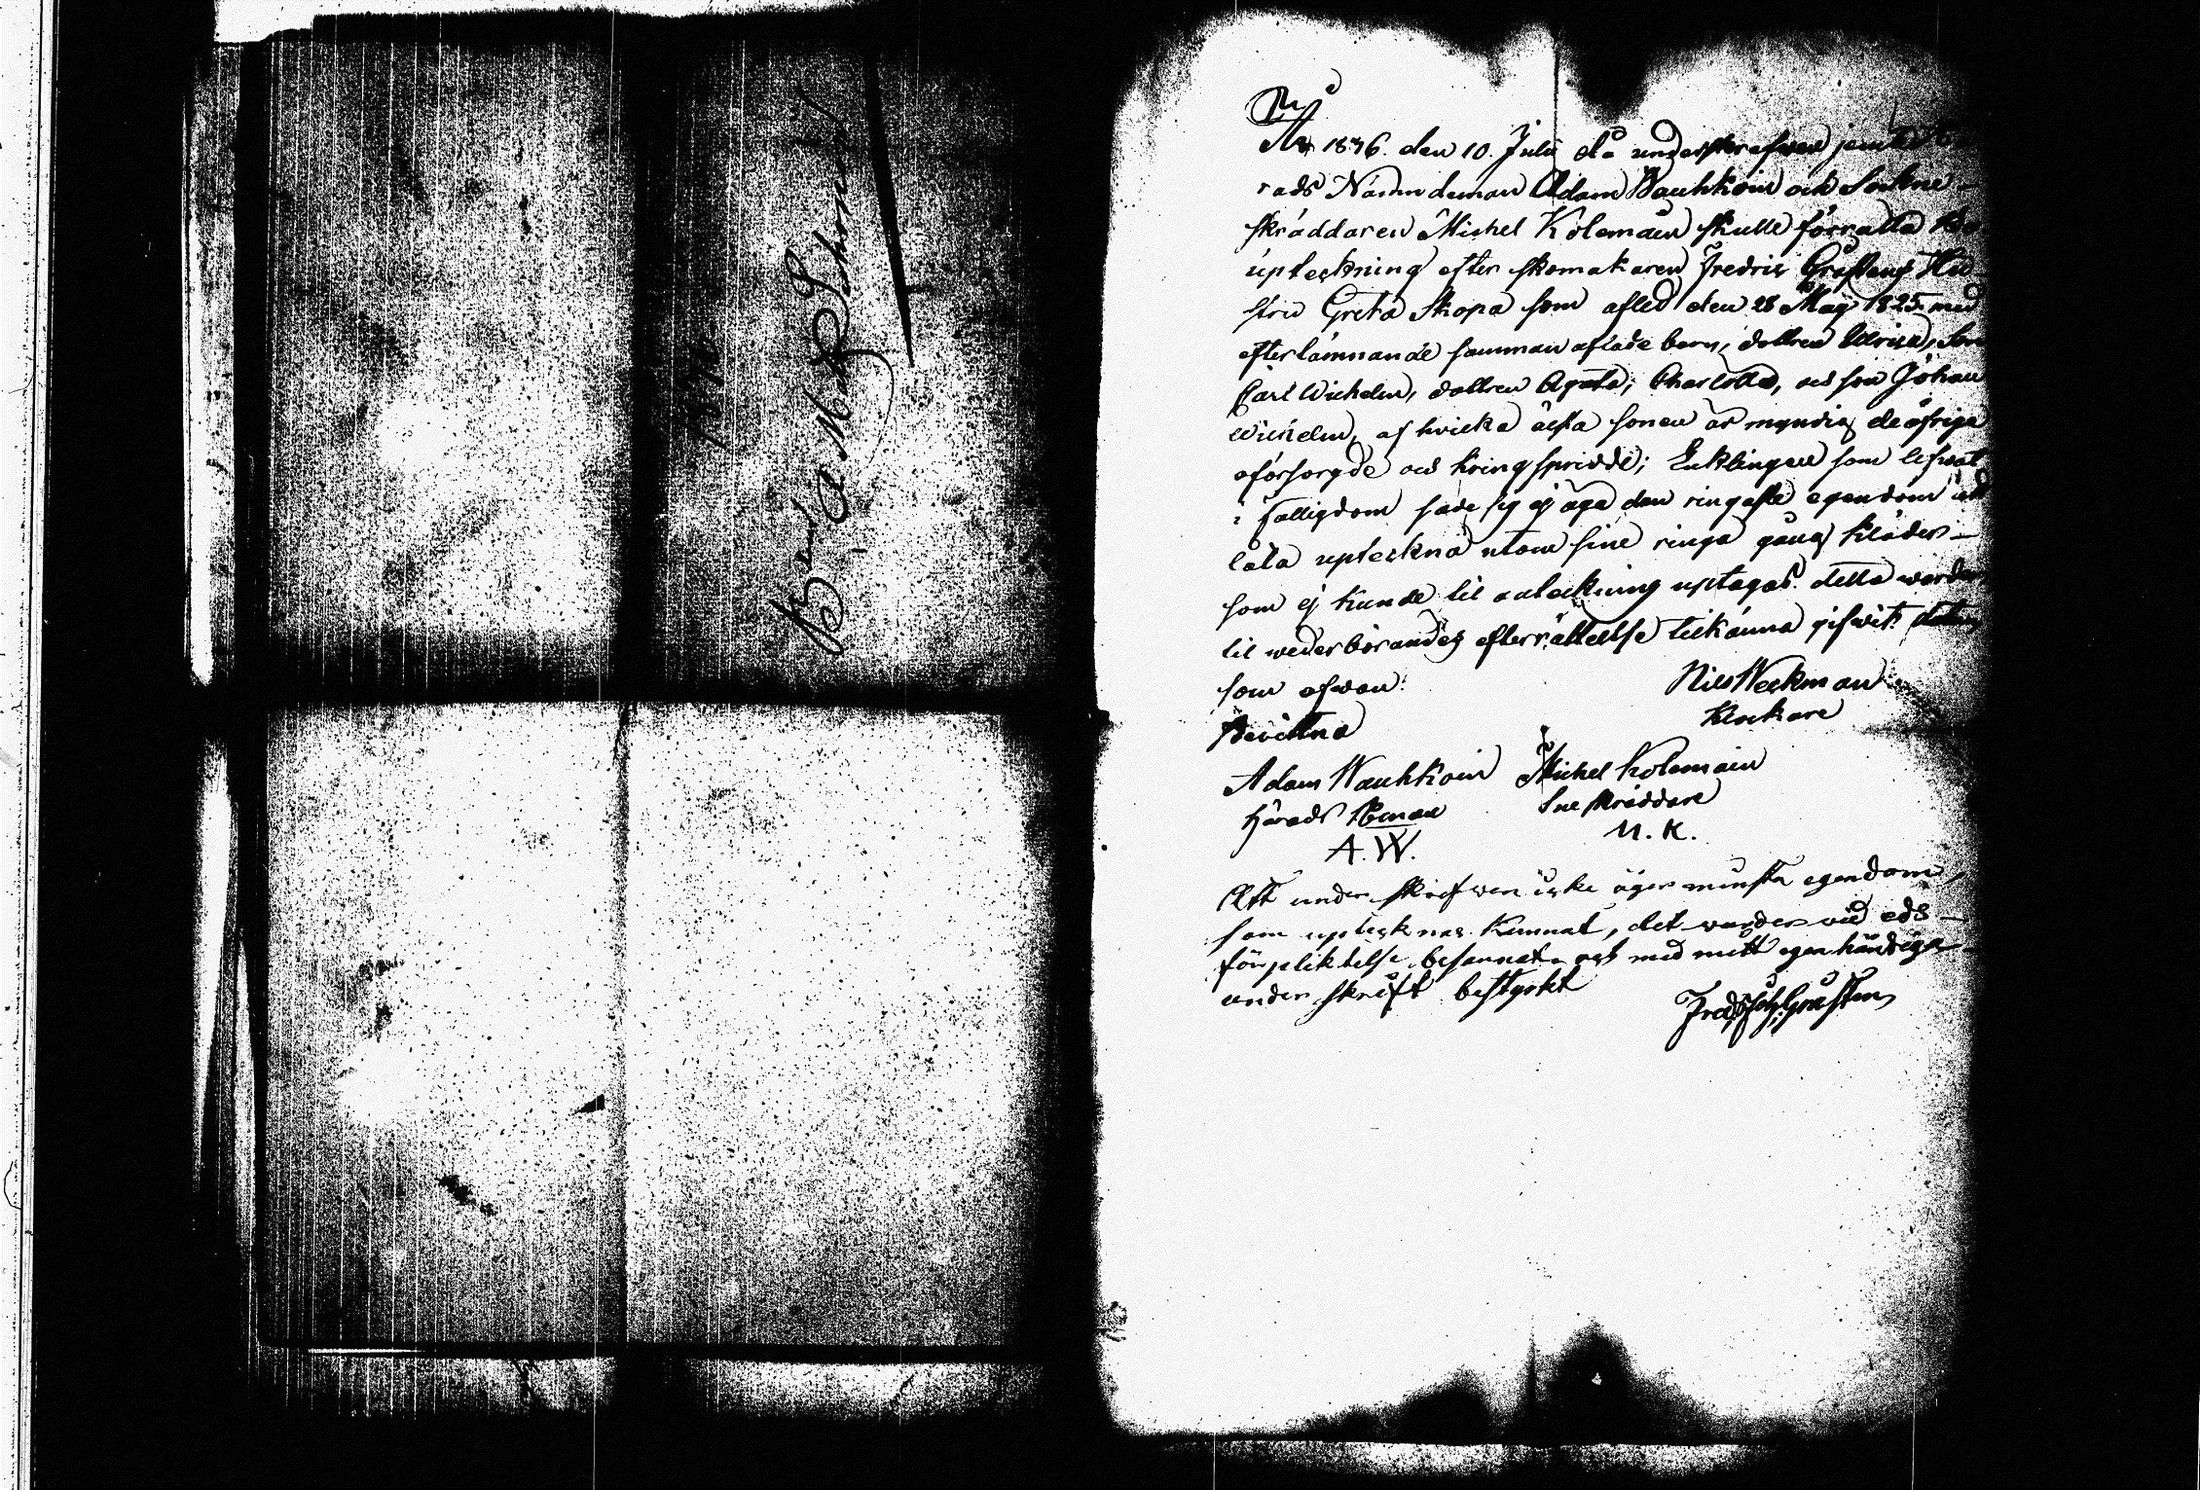 År 1836 den 10 Julii då underskrefven jemte
rads Nämndeman Adam Wauhkoin och Sockne-
skräddaren Michel Kolemain skulle förrätta
upteckning efter skomakaren Fredric Gråstens Hu
stru Greta Skopa som afled den 28 Maij 1825 med
efterlämnande samman aflade barn, dottren Ulrica, Son
Carl Wilhelm, dottren Agata, Charlotta, och son Johan
Wilhelm, af hvilka älsta sonen är myndig de öfriga
oförsorgde och kringspridde; Enklingen som lefvat
i fattigdom sade sig ej äga den ringaste egendom att
låta upteckna utom sine ringa gång kläder –
som ej kunde til anteckning uptagas. detta warder
til wederbörandes efterrättelse tilkänna gifwit. datum
som ofwan.
Nils Weckman
Klockare
Bevittna
Adam Wauhkoin Michel Kolemain
Härads Skräddare
A. W. M. K.
Att underskrifwen icke äger minsta egendom,
som uptecknas kunnat, det warder wid eds –
förpliktelse besannat och med mitt egenhändiga
underskrift bestyrkt
Gråsten